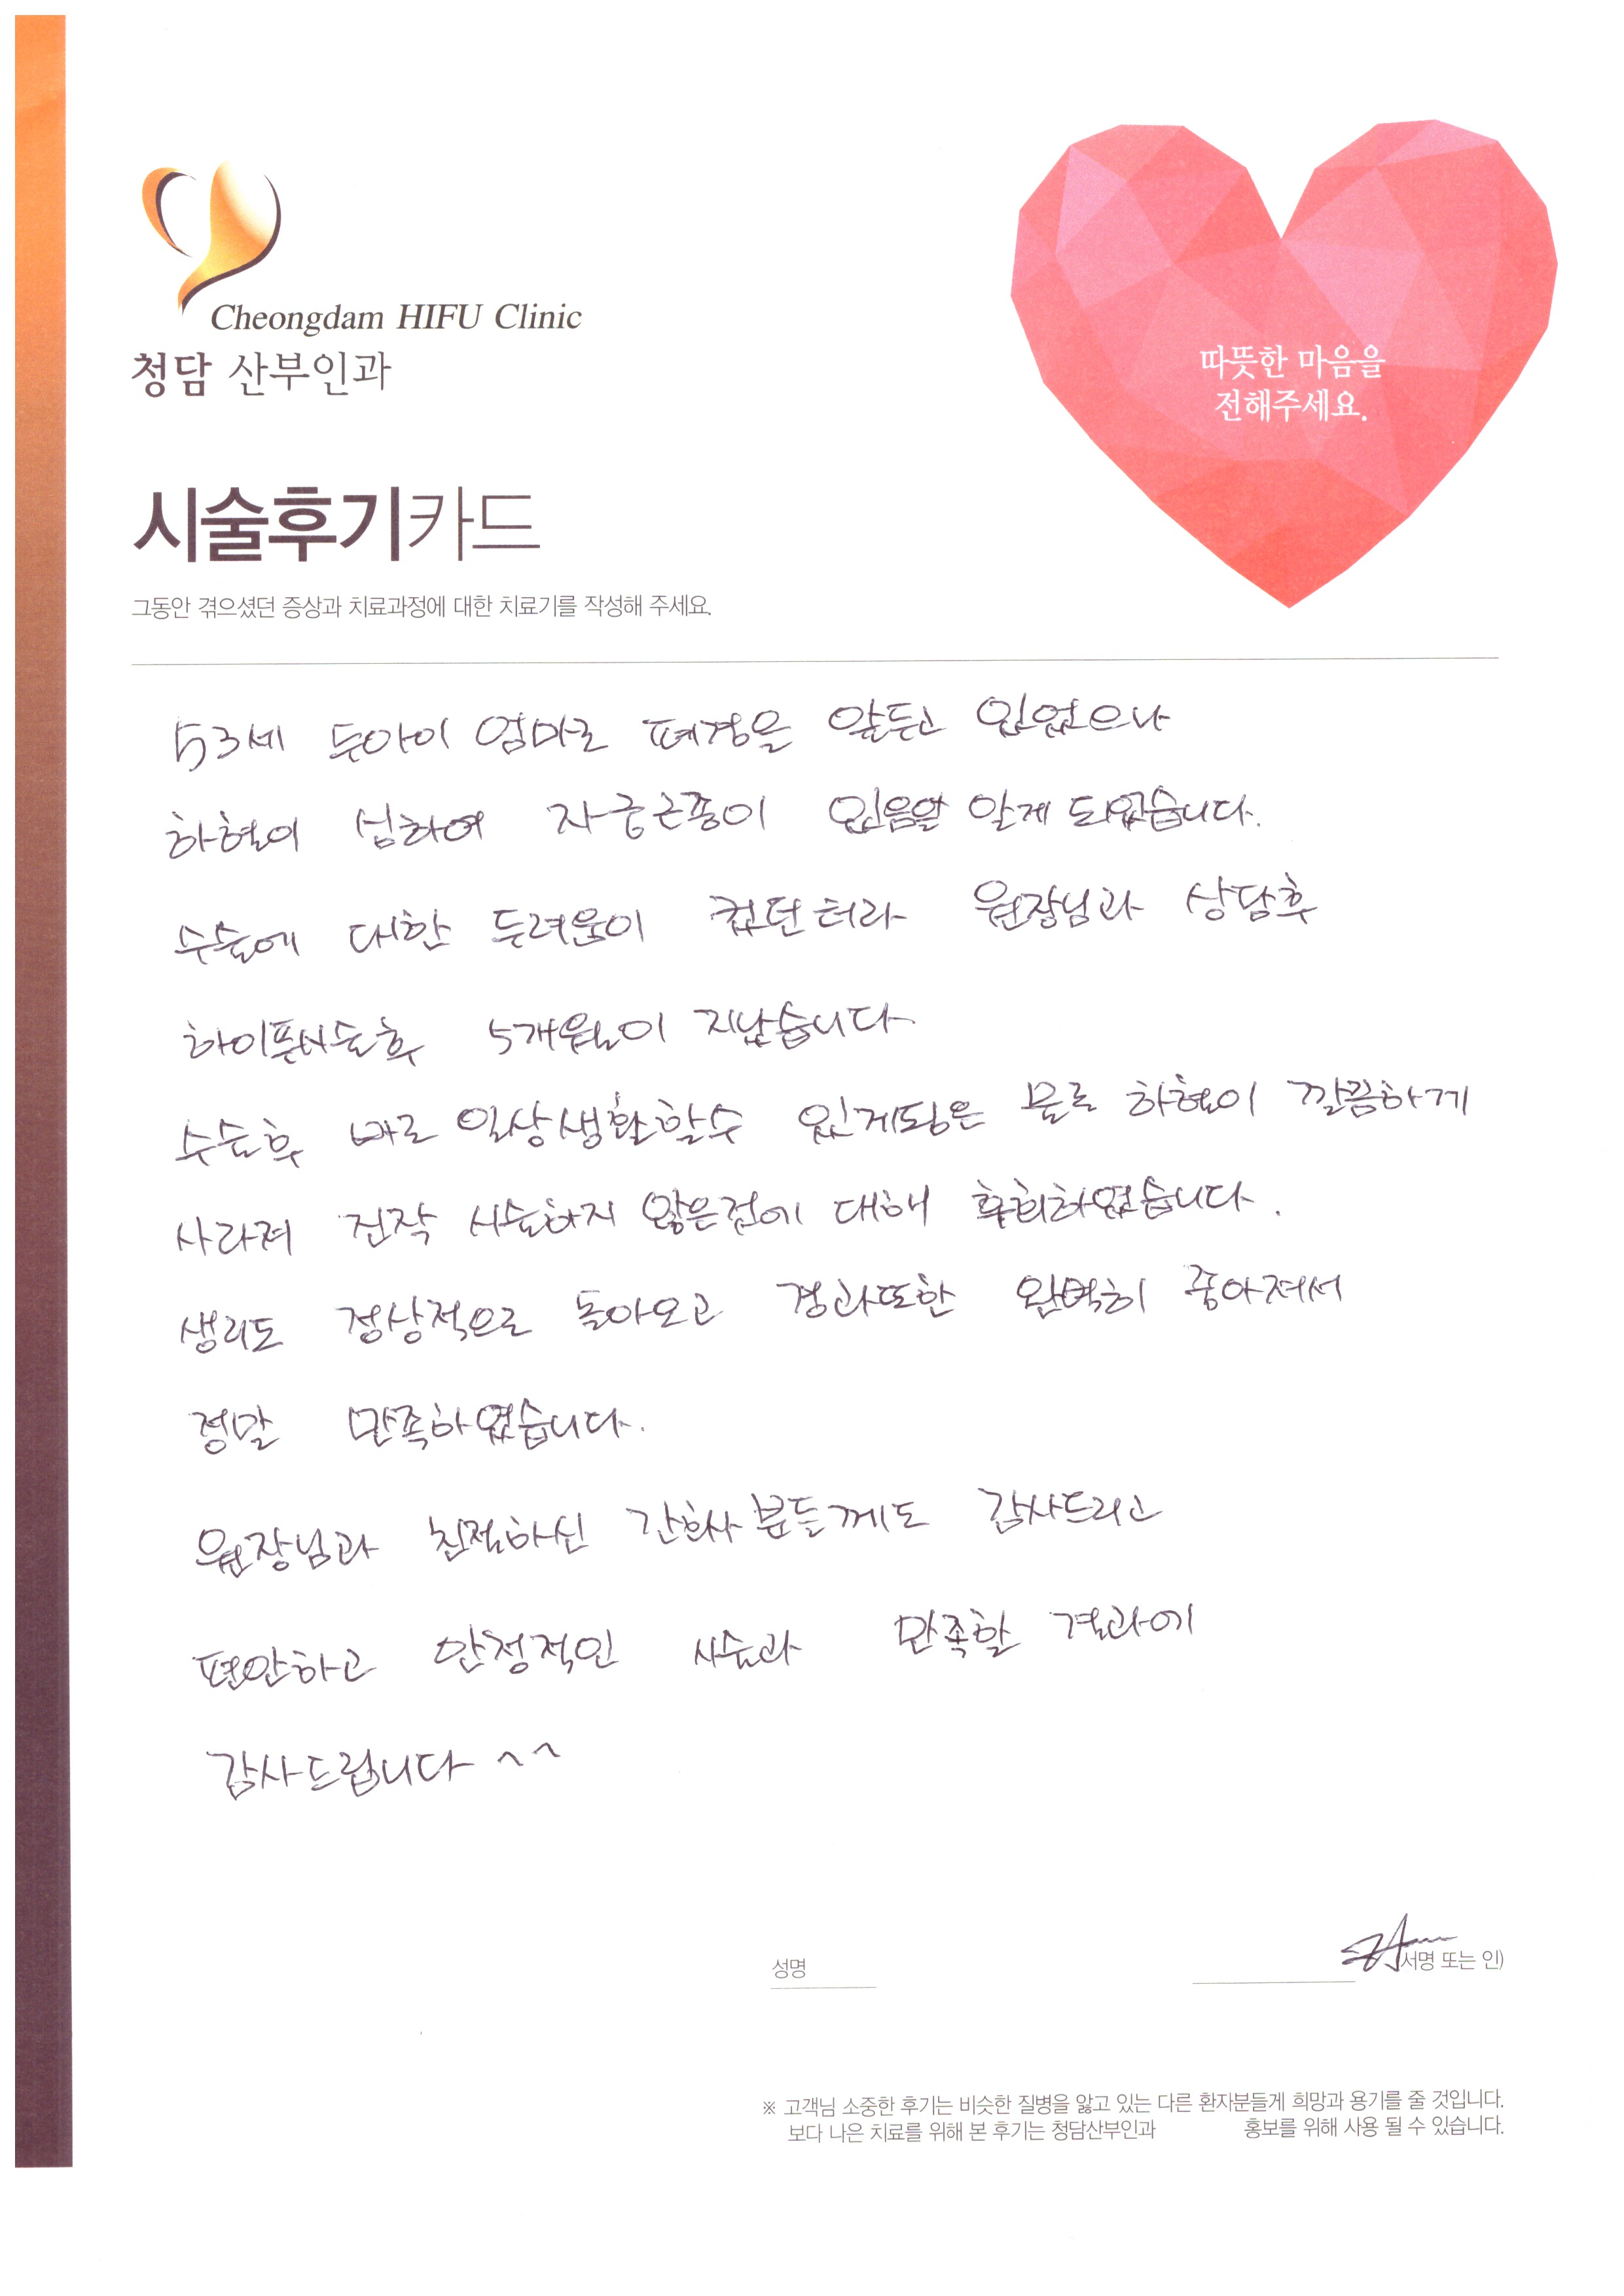 Cheongdam HIFU Clinic
청담 산부인과
따뜻한 마음을
전해주세요.
시술후기카드
그동안 겪으셨던 증상과 치료과정에 대한 치료기를 작성해 주세요.
53세 두아이 엄마로 폐경을 앞두고 있었으나
하혈이 심하여 자궁근종이 있음을 알게 되었습니다.
수술에 대한 두려움이 컸던터라 원장님과 상담후
하이푸시술후 5개월이 지났습니다
수술후 바로 일상생활할수 있게됨은 물론 하혈이 깔끔하게
사라져 진작 시술하지 않은점에 대해 후회하였습니다.
생리도 정상적으로 돌아오고 경과또한 완벽히 좋아져서
정말 만족하였습니다.
원장님과 친절하신 간호사분들께도 감사드리고
편안하고 안정적인 시술과 만족할 결과에
감사드립니다 ^^
성명
서명 또는 인)
※ 고객님 소중한 후기는 비슷한 질병을 앓고 있는 다른 환자분들게 희망과 용기를 줄 것입니다.
보다 나은 치료를 위해 본 후기는 청담산부인과 홍보를 위해 사용 될 수 있습니다.